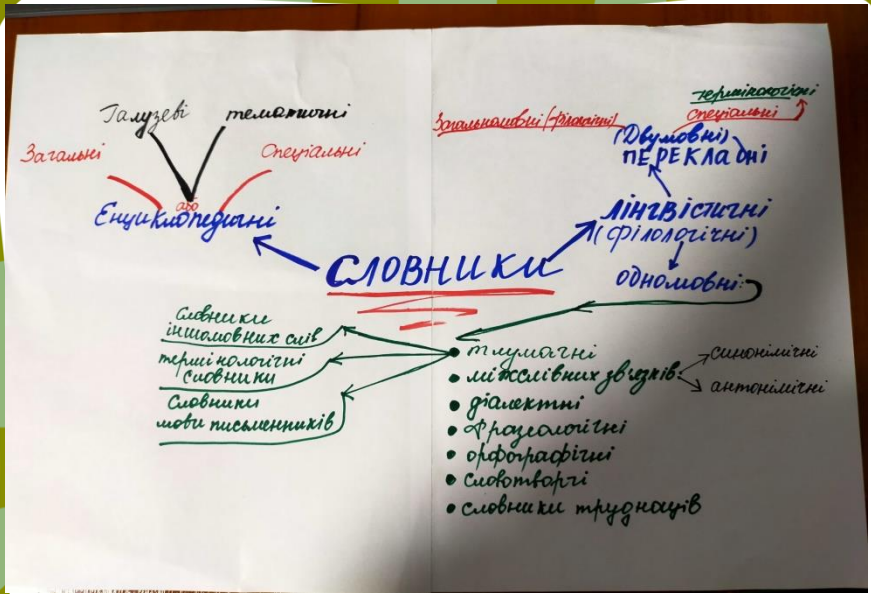 Галузеві
тематичні
Загальні
Спеціальні
або
Енциклопедичні
термінологічні
спеціальні
Загальномовні (філологічні)
(Двумовні)
ПЕРЕКЛАДНІ
ЛІНГВІСТИЧНІ
(філологічні)
одномовні:
СЛОВНИКИ
Словники
іншомовних слів
термінологічні
словники
Словники
мови письменників
• тлумачні
• міжслівних зв'язків
синонімічні
антонімічні
• діалектні
• Фразеологічні
• орфографічні
• словотворчі
• словники труднощів